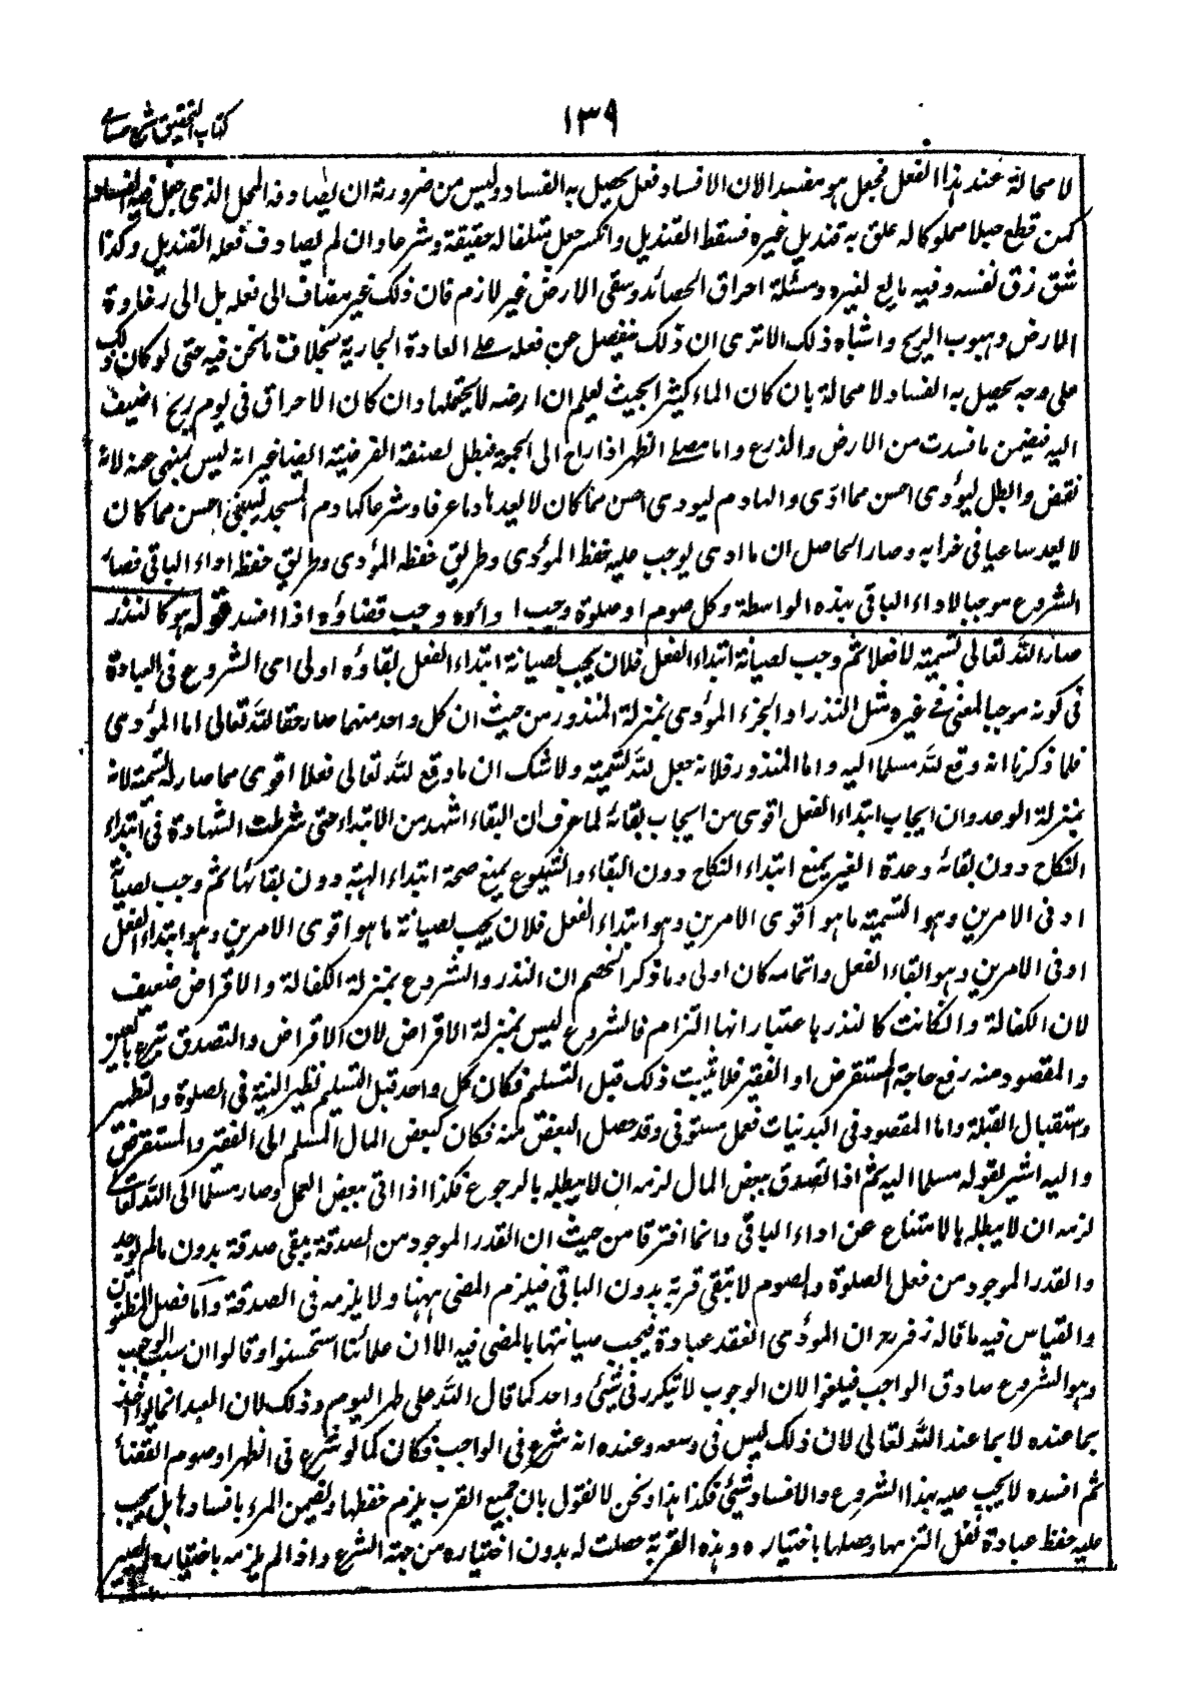 ١٣٩
كتاب التحقيق شرح حسامي
لا محالة عند هذا الفعل فجعل هو مفسدا لان الافساد فعل يحصل به الفساد وليس من ضرورته ان يصادف المحل الذى حصل فيه الفساد
كمن قطع حبلا مملوكا له علق به قنديل غيره فسقط القنديل وانكسر جعل متلفا له حقيقة وشرعا وان لم يصادف فعله القنديل وكذا
شق زق نفسه وفيه مايع لغيره ومسئلة احراق الحصائد وسقى الارض غير لازم فان ذلك غير مضاف الى فعله بل الى رخاوة
الارض وهبوب الريح واشباه ذلك الا ترى ان ذلك ينفصل عن فعله على العادة الجارية بخلاف ما نحن فيه حتى لو كان ذلك
على وجه يحصل به الفساد لا محالة بان كان الماء كثيرا بحيث يعلم ان ارضه لا يحتملها وان كان الاحراق فى يوم ريح اضيف
اليه فيضمن ما فسدت من الارض والذرع واما مصلى الظهر اذا راح الى الجمعة فبطل لصنعه الفرضية ايضا غير انه ليس بمنهى عنه لانه
نقض وابطل ليؤدى احسن مما ادى والهادم ليودى احسن مما كان لا يعد هادما عرفا وشرعا كهادم المسجد ليبنى احسن مما كان
لا يعد ساعيا فى خرابه وصار الحاصل ان ما ادى يوجب عليه حفظ المؤدى وطريق حفظه المؤدى وطريق حفظه اداء الباقى فصار
الشروع موجبا لاداء الباقى بهذه الواسطة وكل صوم او صلوة وجب اداؤه وجب قضاؤه اذا افسد قوله هو كالنذر
صار الله تعالى تسمية لا فعلا ثم وجب لصيانة ابتداء الفعل فلان يجب لصيانة ابتداء الفعل بقاؤه اولى اى الشروع فى العبادة
فى كونه موجبا لمعنى فى غيره مثل النذر او الجزء المؤدى بمنزلة المنذور من حيث ان كل واحد منهما صار حقا لله تعالى اما المؤدى
فلما ذكرنا انه وقع لله مسلما اليه واما المنذور فلانه جعل لله تسمية ولا شك ان ما وقع لله تعالى فعلا اقوى مما صار له تسمية لانه
بمنزلة الوعد وان ايجاب ابتداء الفعل اقوى من ايجاب بقائه لما عرف ان البقاء اسهل من الابتداء حتى شرطت الشهادة فى ابتداء
النكاح دون بقائه وعدة الغير يمنع ابتداء النكاح دون البقاء والشيوع يمنع صحة ابتداء الهبة دون بقائها ثم وجب لصيانة
ادنى الامرين وهو التسمية ما هو اقوى الامرين وهو ابتداء الفعل فلان يجب لصيانة ما هو اقوى الامرين وهو ابتداء الفعل
ادنى الامرين وهو ابقاء الفعل واتمامه كان اولى وما ذكر الخصم ان النذر والشروع بمنزلة الكفالة والاقراض ضعيف
لان الكفالة وان كانت كالنذر باعتبار انها التزام فالشروع ليس بمنزلة الاقراض لان الاقراض والتصدق تبرع بالعين
والمقصود منه رفع حاجة المستقرض او الفقير فلا يثبت ذلك قبل التسليم فكان كل واحد قبل التسليم نظير النية فى الصلوة والتطهير
واستقبال القبلة واما المقصود فى البدنيات فعمل مستوفى وقد حصل البعض منه فكان كبعض المال المسلم الى الفقير والمستقرض
واليه اشير بقوله مسلما اليه ثم اذا تصدق ببعض المال لزمه ان لا يبطله بالرجوع فكذا اذا اتى ببعض العمل وصار مسلما الى الله تعالى
لزمه ان لا يبطله بالامتناع عن اداء الباقى وانما افترقا من حيث ان القدر الموجود من الصدقة يبقى صدقة بدون ما لم يوجد
والقدر الموجود من فعل الصلوة والصوم لا تبقى قربة بدون الباقى فيلزم المضى ههنا ولا يلزمه فى الصدقة واما فصل المظنون
والقياس فيه ما قاله زفر رح ان المؤدى انعقد عبادة فيجب صيانتها بالمضى فيه الا ان علمائنا استحسنوا وقالوا ان سبب الوجوب
وهو الشروع صادق الواجب فيلغو الان الوجوب لا يتكرر فى شئى واحد كما قال الله على ظهر اليوم وذلك لان العبد انما يؤاخذ
بما عنده لا بما عند الله تعالى لان ذلك ليس فى وسعه وعنده انه شرع فى الواجب فكان كما لو شرع فى الظهر او صوم القضاء
ثم افسده لا يجب عليه بهذا الشروع والافساد شئى فكذا هذا ونحن لا نقول بان جميع القرب يلزم حفظها ويضمن المرء بافسادها بل يجب
عليه حفظ عبادة نفل التزمها وصلها باختياره وهذه القربة حصلت له بدون اختياره من جهة الشرع واذا لم يلزمه باختياره